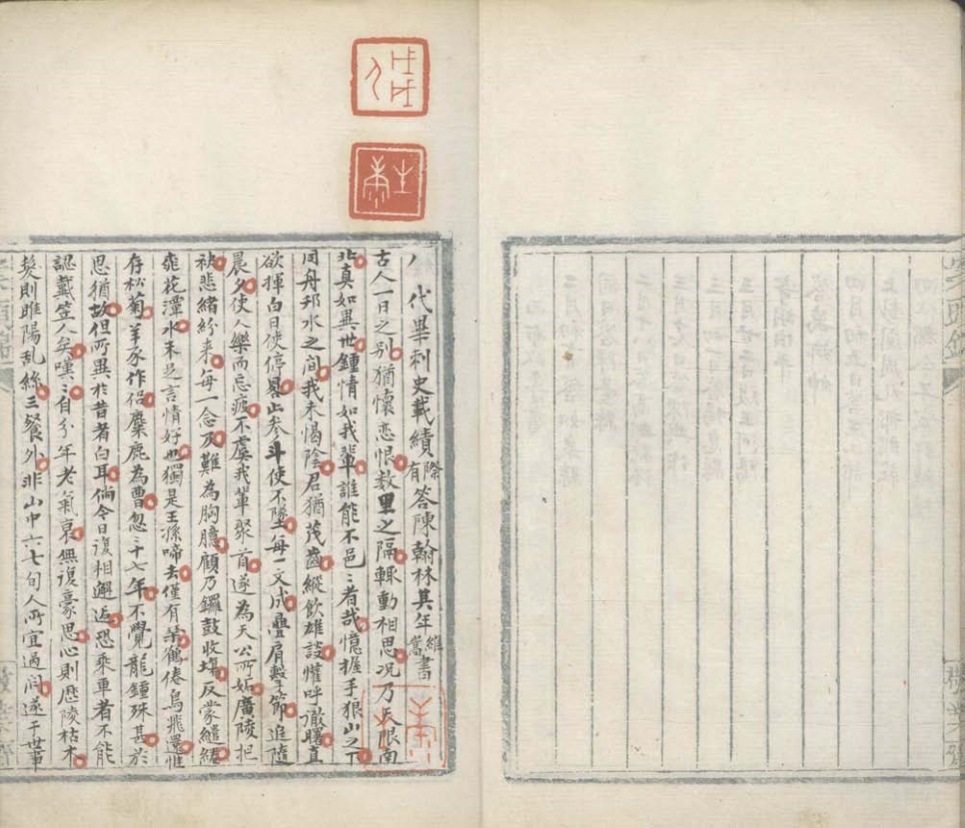 代畢刺史載績際有答陳翰林其年維嵩書
古人一日之別猶懷恋恨数里之隔輒動相思况乃天限南
北真如異世鍾情如我輩誰能不邑〻者哉憶握手狼山之下
同舟邗水之間我未愒陰君猶茂齒縱飲雄談懽呼徹曙直
欲揮白日使停晷此参斗使不墜每一文成疊肩擊節追隨
晨夕使人樂而忘疲不虞我輩聚首遂為天公所妬廣陵把
袂悲緒紛来每一念及難為胸臆顧乃鑼鼓收塲反蒙繾綣
桃花潭水未足言情好也獨是王孫啼去僅有琹鶴倦鳥飛還惟
存松菊羊豕作侣麋鹿為曹忽〻十七年不覺龍鍾殊甚於
思猶故但所異於昔者白耳倘令日復相邂逅恐乘車者不能
認戴笠人矣嘆〻自分年老氣衰無復豪思心則歷陵枯木
髮則睢陽乱絲三餐外非山中六七句人所宜過问遂于世事